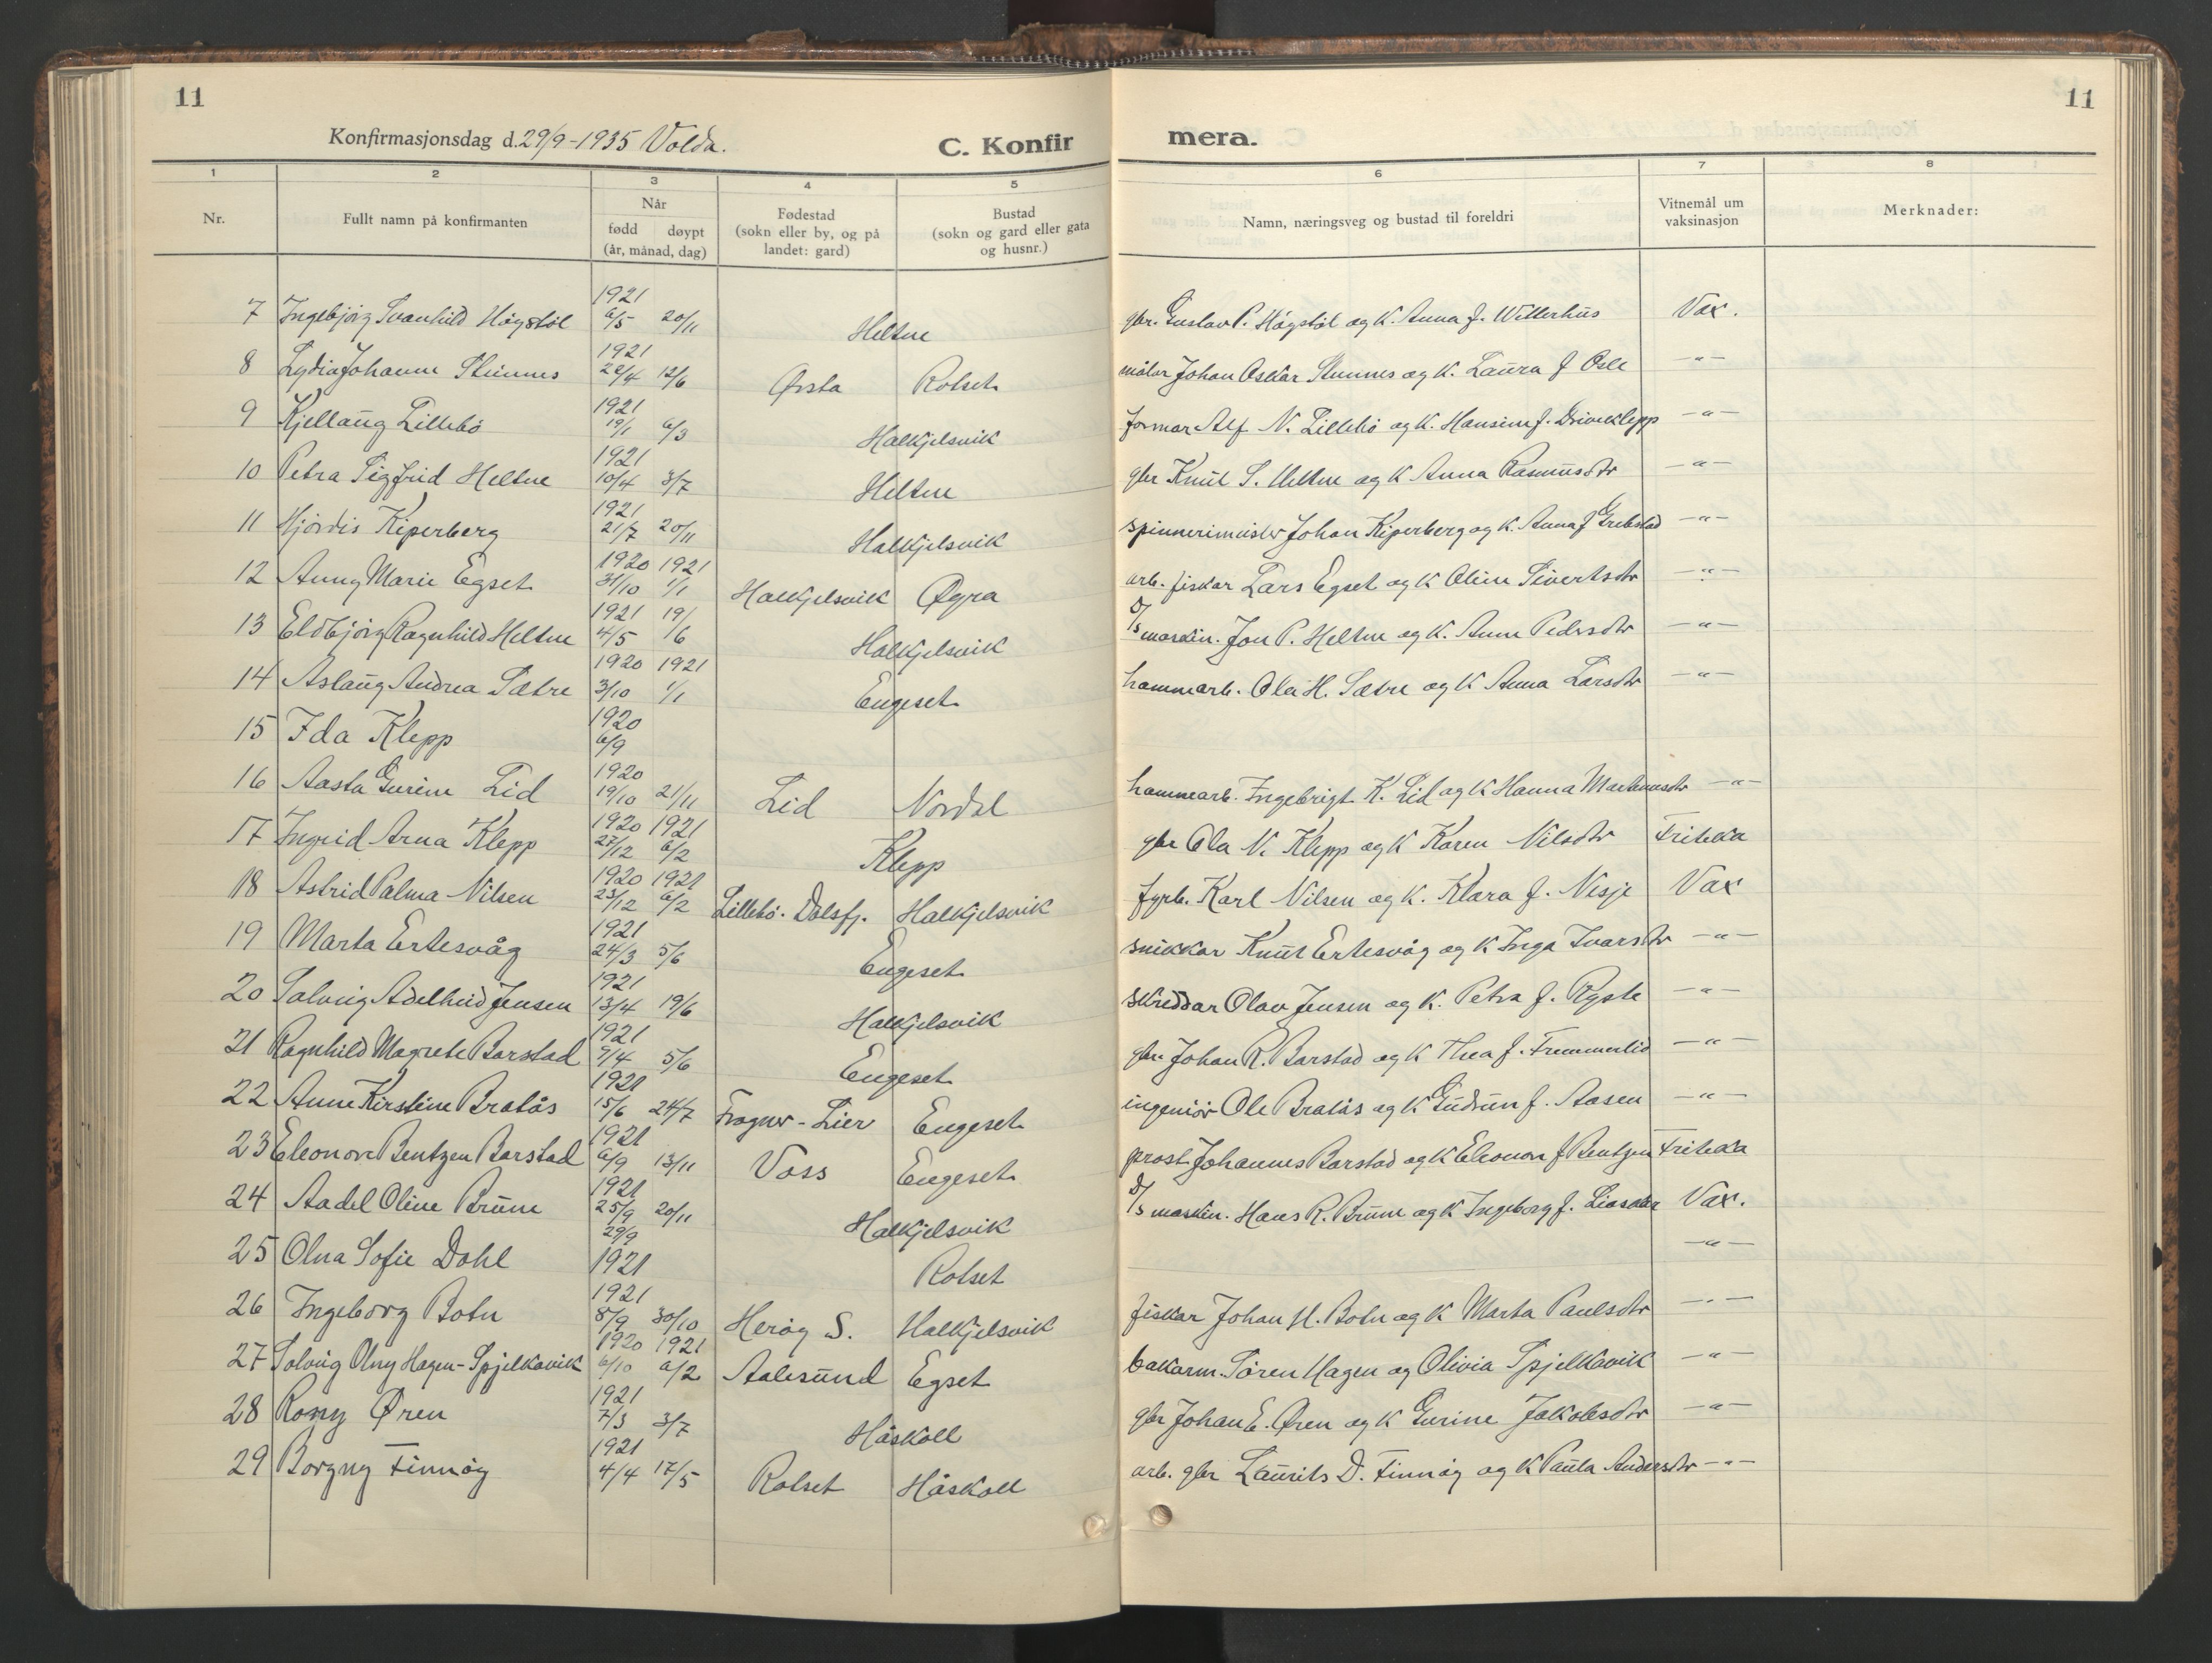 11
11
Konfirmasjonsdag d. 29/9-1935 Volda.
C. Konfirmera.
1 2 3 4 5 6 7 8
Nr. | Fullt namn på konfirmanten | Når født døypt (år, månad, dag) | Fødestad (sokn eller by, og på landet: gard) | Bustad (sokn og gard eller gata og husnr.) | Namn, næringsveg og bustad til foreldri | Vitnemål um vaksinasjon | Merknader:
7 Ingebjörg Svanhild Högstöl 1921 6/5 20/11 Heltne gbr. Gustav P. Högstöl og K. Anna f. Witterhus Vax.
8 Lydia Johanne Steinnes 1921 20/4 12/6 Ørsta Rotset målar Johan Oskar Steinnes og K. Laura f Osle -"-
9 Kjellaug Lillebö 1921 19/1 6/3 Halkjelsvik formar Alf N. Lillebö og K. Hansine f. Driveklepp -"-
10 Petra Sigfrid Heltne 1921 10/4 3/7 Heltne gbr Knut S. Heltne og K Anna Rasmusdtr -"-
11 Hjördis Kiperberg 1921 21/7 20/11 Halkjelsvik spinnerimeister Johan Kiperberg og K. Anna f Grebstad -"-
12 Anny Marie Egset 1920 1921 31/10 1/1 Halkjelsvik Øyra arb. fiskar Lars Egset og K Oline Sivertsdtr -"-
13 Eldbjörg Ragnhild Heltne 1921 4/5 19/6 Halkjelsvik D/S maskin. Jon P. Heltne og K. Anne Pedersdtr -"-
14 Aslaug Andrea Sætre 1920 1921 3/10 1/1 Engeset hammarb. Ola H. Sætre og K Anna Larsdtr -"-
15 Ida Klepp 1920 6/9
16 Aasta Gurine Lid 1920 19/10 21/11 Lid Nordal hammarb. Ingebrigt K. Lid og K Hanna Martinusdtr -"-
17 Ingrid Arna Klepp 1920 1921 27/12 6/2 Klepp gbr Ola N. Klepp og K Karen Nilsdtr Friteken
18 Astrid Palma Nilsen 1920 1921 23/12 6/2 Lillebö. Dalsfj. Halkjelsvik fyrb. Karl Nilsen og K. Klara f. Nesje Vax
19 Marta Ertesvåg 1921 24/3 5/6 Engeset snikkar Knut Ertesvåg og K Inga Ivarsdtr -"-
20 Solveig Adelheid Jensen 1921 13/4 19/6 Halkjelsvik skreddar Olav Jensen og K. Petra f. Ryste -"-
21 Ragnhild Magrete Barstad 1921 9/4 5/6 Engeset gbr Johan R. Barstad og K Thea f. Fremmerlid -"-
22 Anne Kirstine Bratås 1921 15/6 24/7 Frogner - Lier Engeset ingeniör Ole Bratås og K Gudrun f. Aasen -"-
23 Eleonore Bentzen Barstad 1921 6/9 13/11 Voss Engeset prost Johannes Barstad og K Eleonore f Bentzen Friteken
24 Aadel Oline Brune 1921 25/9 20/11 Halkjelsvik D/S maskin. Hans R. Brune og K Ingeborg f. Liasæter Vax.
25 Olna Sofie Dahl 29/9 1921 Rotset -"-
26 Ingeborg Botn 1921 8/9 30/10 Heröy S. Halkjelsvik fiskar Johan H. Botn og K Marta Paulsdtr -"-
27 Solveig Olny Hagen-Spjelkavik 1920 1921 6/10 6/2 Aalesund Egset bakarm. Sören Hagen og Olivia Spjelkavik -"-
28 Romy Øren 1921 7/3 3/7 Håskoll gbr Johan E. Øren og K Gurine Jakobsdtr -"-
29 Borgny Finnöy 1921 4/4 17/5 Rotset Håskoll arb. gbr Laurits D. Finnöy og K Paula Andersdtr -"-